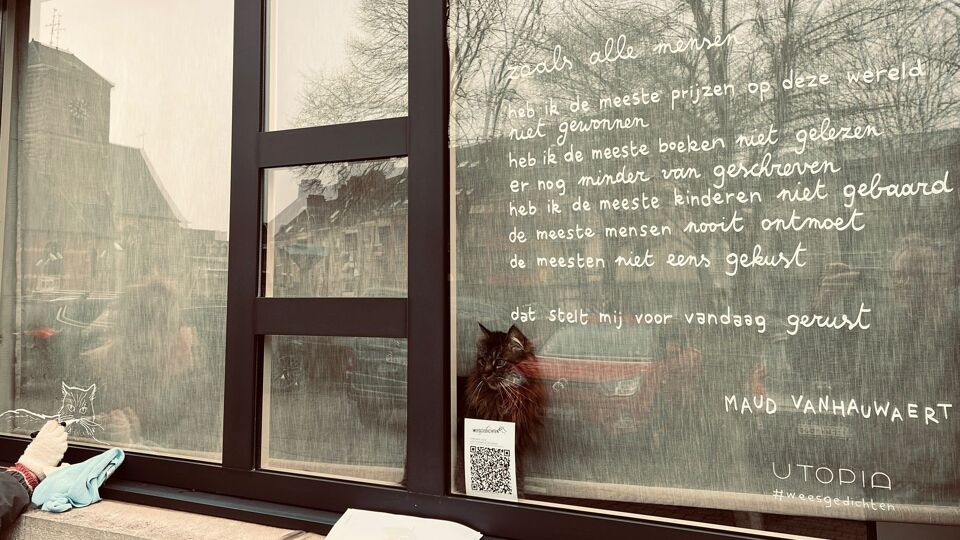 zoals alle mensen
heb ik de meeste prijzen op deze wereld
niet gewonnen
heb ik de meeste boeken niet gelezen
er nog minder van geschreven
heb ik de meeste kinderen niet gebaard
de meeste mensen nooit ontmoet
de meesten niet eens gekust
dat stelt mij voor vandaag gerust
MAUD VANHAUWAERT
UTOPIA
#weesgedichten
WEESGEDICHTEN